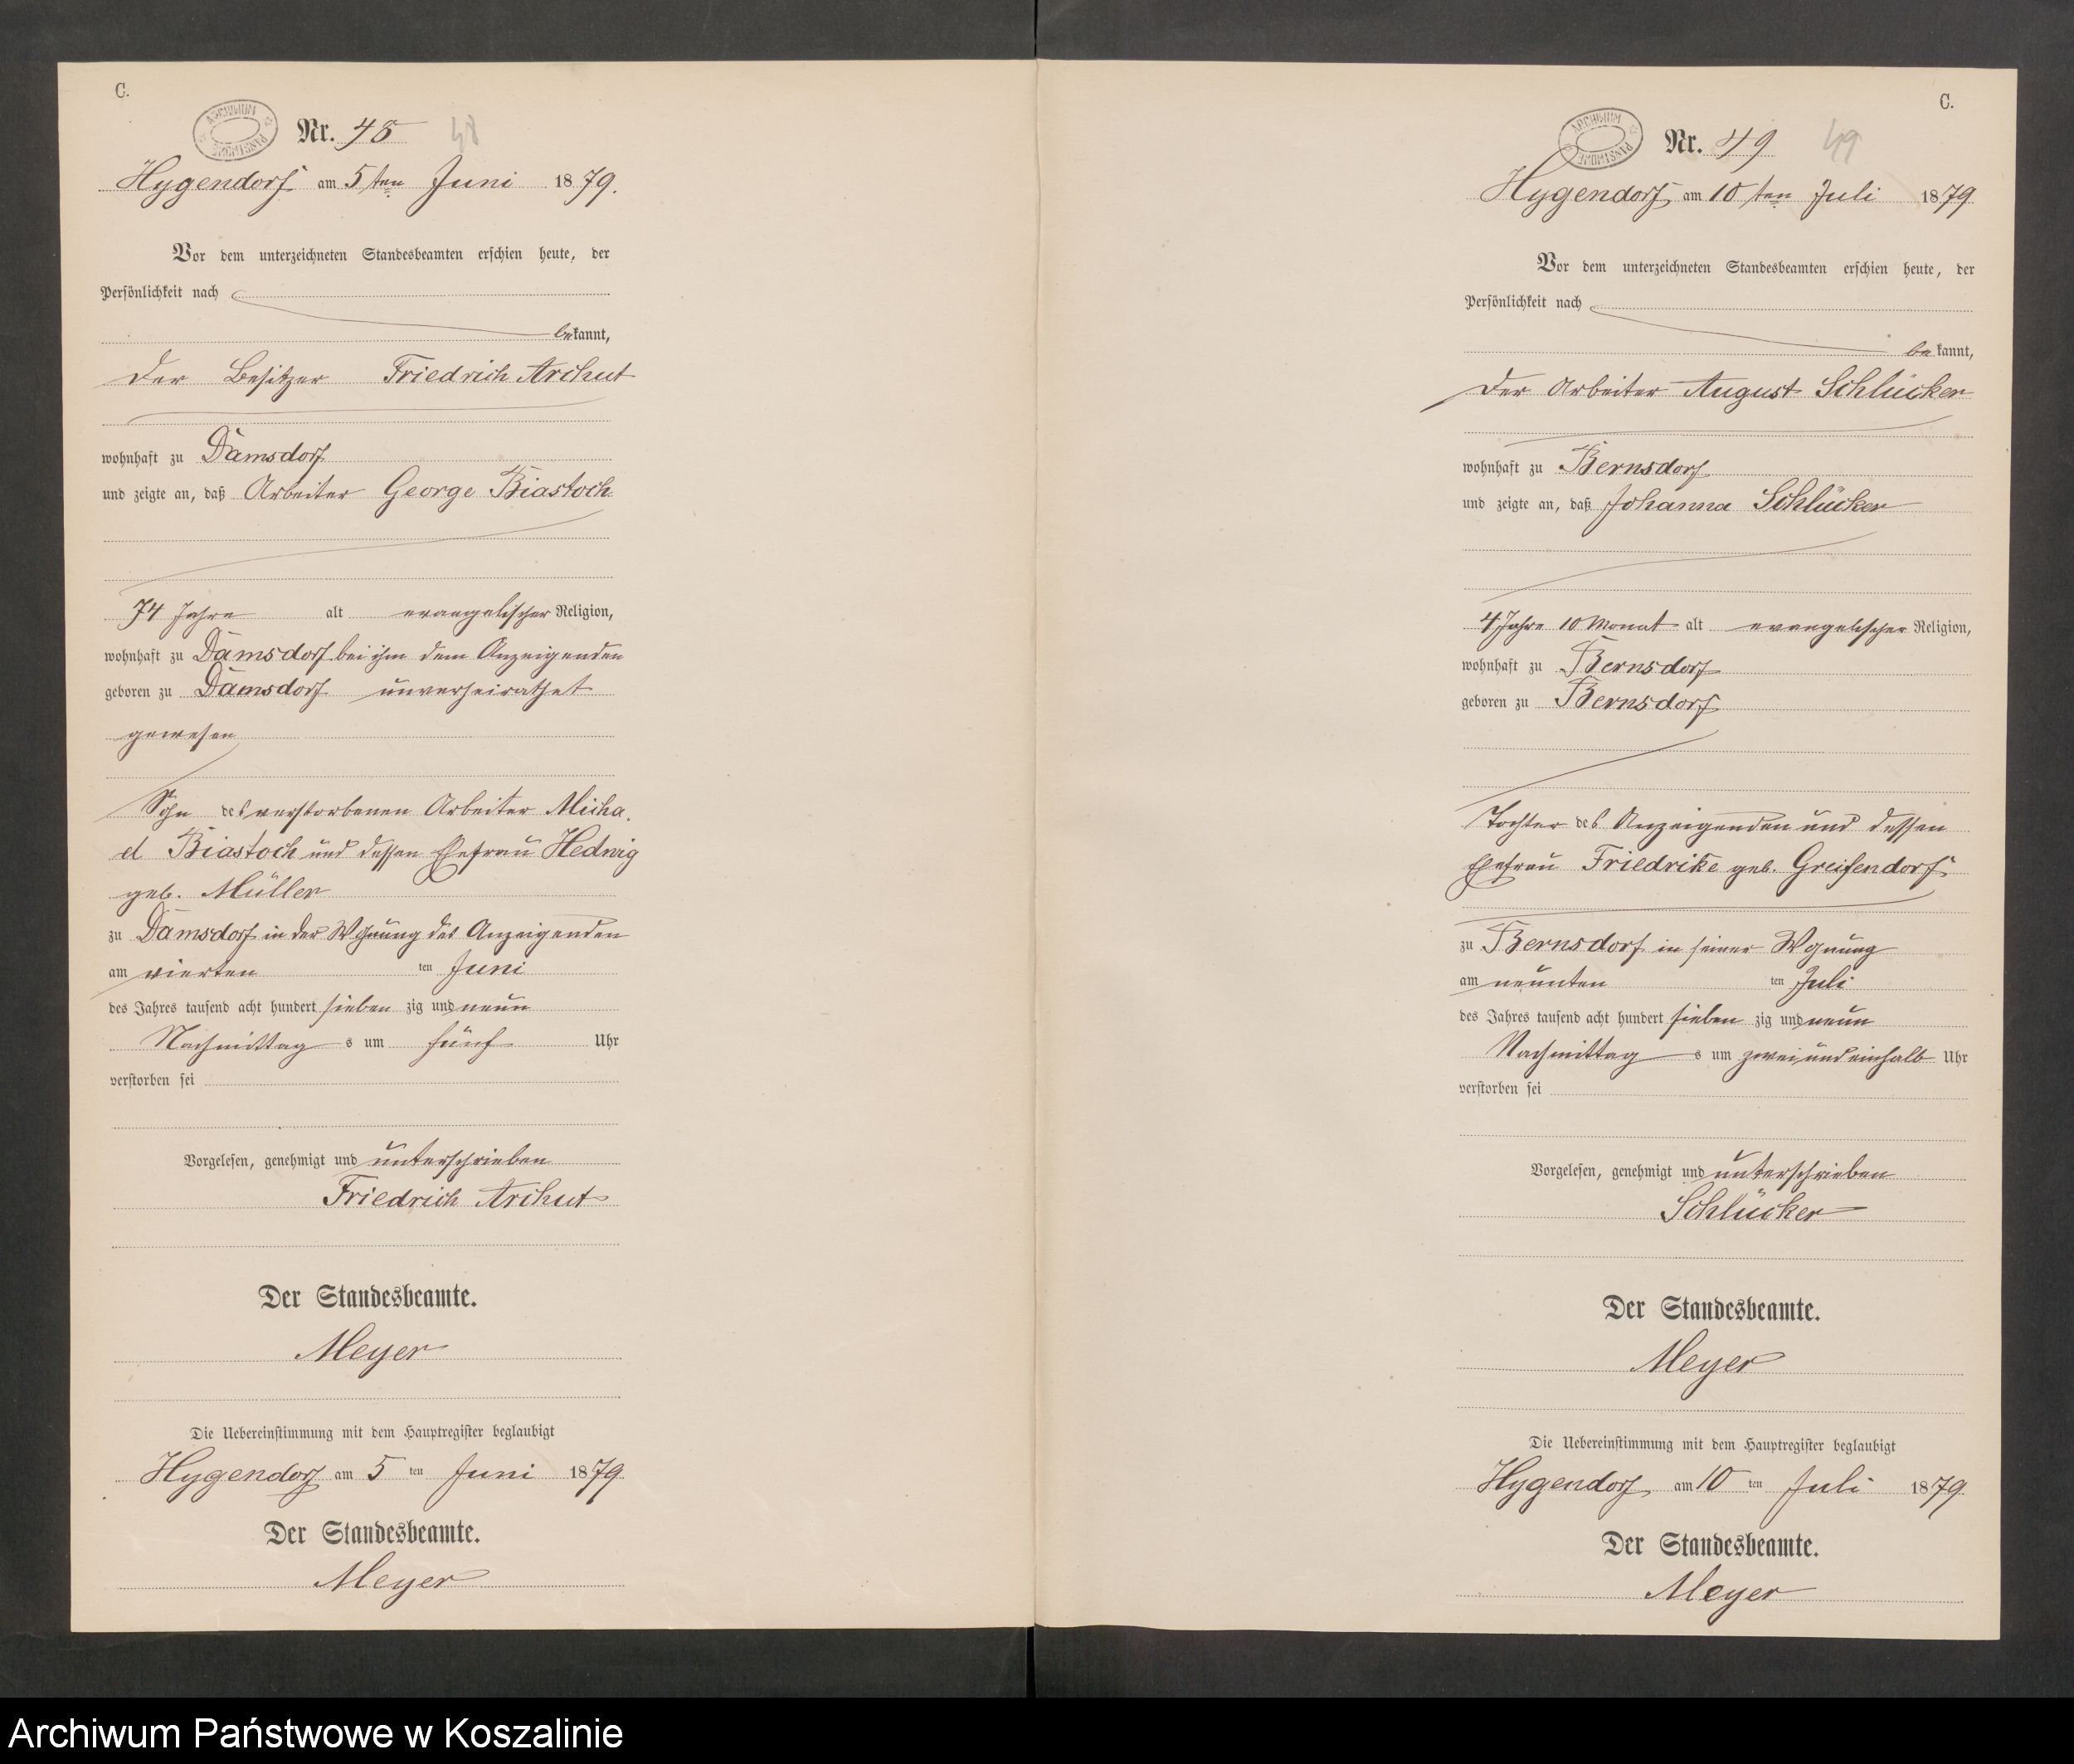 C.
ARCHIWUM PAŃSTWOWE
Nr. 48 48
Hygendorf am 5ten Juni 1879.
Vor dem unterzeichneten Standesbeamten erschien heute, der
Persönlichkeit nach
bekannt,
der Besitzer Friedrich Archut
wohnhaft zu Damsdorf
und zeigte an, daß Arbeiter George Biastoch
74 Jahre alt evangelischer Religion,
wohnhaft zu Damsdorf bei ihm dem Anzeigenden
geboren zu Damsdorf unverheirathet
gewesen
Sohn des verstorbenen Arbeiter Micha
el Biastoch und dessen Ehefrau Hedwig
geb. Müller
zu Damsdorf in der Wohnung des Anzeigenden
am vierten ten Juni
des Jahres tausend acht hundert sieben zig und neun
Nachmittag s um fünf Uhr
verstorben sei
Vorgelesen, genehmigt und unterschrieben
Friedrich Archut
Der Standesbeamte.
Meyer
Die Uebereinstimmung mit dem Hauptregister beglaubigt
Hygendorf am 5 ten Juni 1879
Der Standesbeamte.
Meyer
C.
ARCHIWUM PAŃSTWOWE
Nr. 49 49
Hygendorf am 10ten Juli 1879
Vor dem unterzeichneten Standesbeamten erschien heute, der
Persönlichkeit nach
bekannt,
der Arbeiter August Schlücker
wohnhaft zu Bernsdorf
und zeigte an, daß Johanna Schlücker
4 Jahre 10 Monat alt evangelischer Religion,
wohnhaft zu Bernsdorf
geboren zu Bernsdorf
Tochter des Anzeigenden und dessen
Ehefrau Friedrike geb. Greifendorf
zu Bernsdorf in seiner Wohnung
am neunten ten Juli
des Jahres tausend acht hundert sieben zig und neun
Nachmittag s um zwei und einhalb Uhr
verstorben sei
Vorgelesen, genehmigt und unterschrieben
Schlücker
Der Standesbeamte.
Meyer
Die Uebereinstimmung mit dem Hauptregister beglaubigt
Hygendorf, am 10 ten Juli 1879
Der Standesbeamte.
Meyer
Archiwum Państwowe w Koszalinie